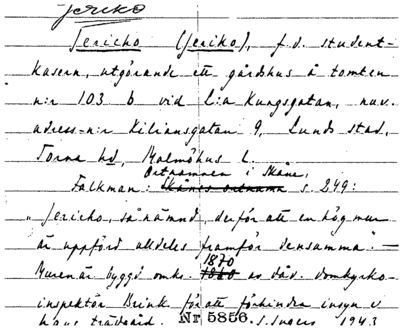 Jeriko
Jericho (Jeriko), f.d. student-
kasern, utgörande ett gårdshus å tomten
n:r 103 b vid L:a Kungsgatan, nuv.
adress-n:r Kiliansgatan 9, Lunds stad,
Torna hd, Malmöhus l.
Ortnamnen i Skåne,
Falkman: Skånes ortnamn s. 249:
"Jericho, så nämnd, derför att en hög mur
är uppförd alldeles framför densamma". —
1870
Muren är byggd omkr. 1860 av dåv. domkyrko-
inspektör Brink för att förhindra insyn i
hans trädgård. Nr 5856. S. Ingers 1943